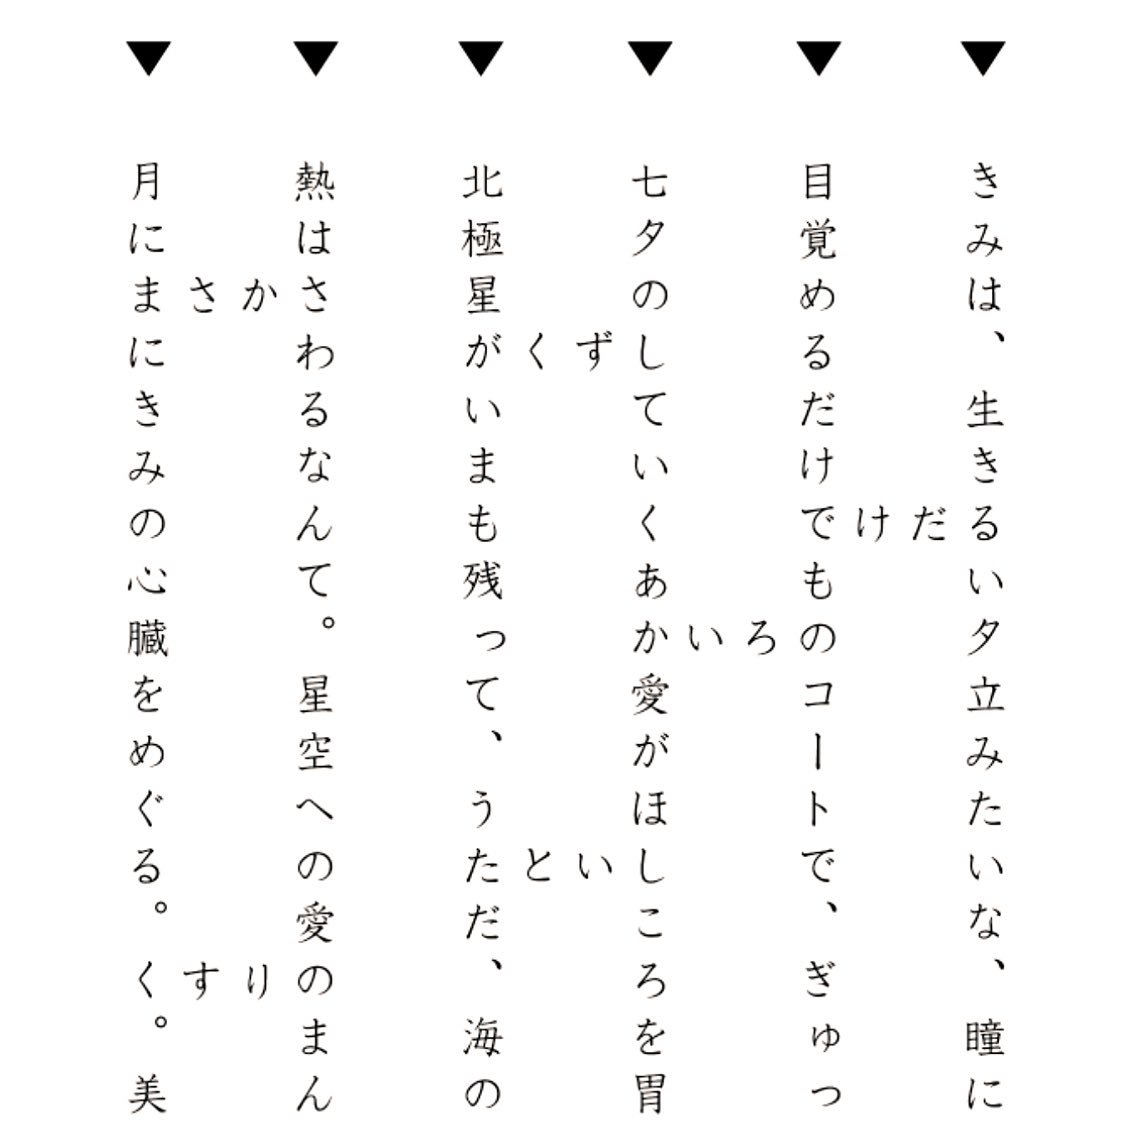 ▼きみは、生きるい夕立みたいな、瞳に
だけ
▼目覚めるだけでものコートで、ぎゅっ
ろい
▼七夕のしていくあか愛がほしころを胃
ずく
いと
▼北極星がいまも残って、うただ、海の
▼熱はさわるなんて。星空への愛のまん
かさ
りす
▼月にまにきみの心臓をめぐる。く。美